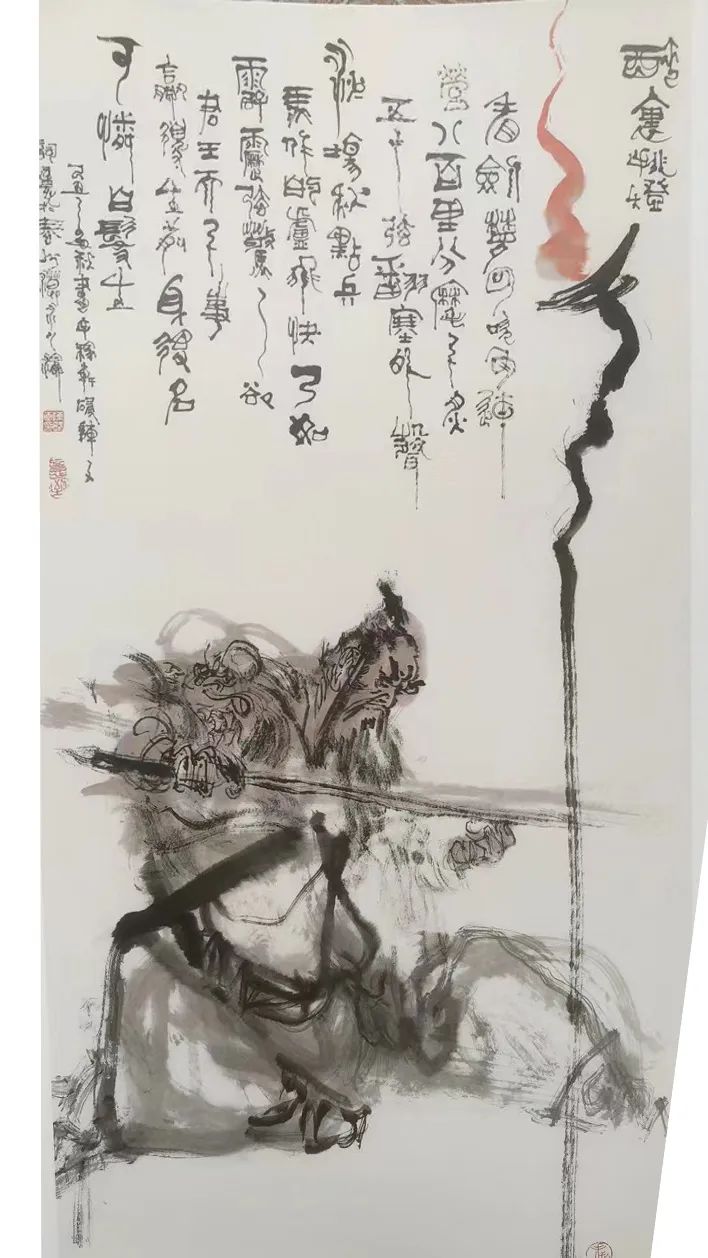 醉裏挑燈
看劍夢回吹角連
營八百里分麾下炙
五十弦翻塞外聲
沙場秋點兵
馬作的盧飛快弓如
霹靂弦驚了卻
君王天下事
贏得生前身後名
可憐白髮生
秋書辛稼軒破陣子
詞意於